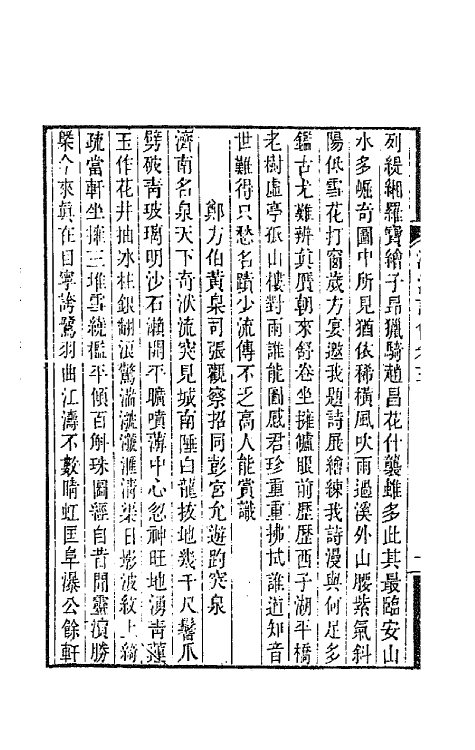 列緹緗羅寶繪子昂獵騎趙昌花什襲雖多此其最臨安山
水多崛奇圖中所見猶依稀橫風吹雨過溪外山腰紫氣斜
陽低雪花打窗歲方宴邀我題詩展繪練我詩漫與何足多
鑑古尤難辨真贋朝來舒卷坐擁爐眼前歷歷西子湖平橋
老樹虛亭孤山樓對雨誰能圖戚君珍重重拂拭誰道知音
世難得只愁名蹟少流傳不乏高人能賞識
鄭方伯黃臬司張觀察招同彭宮允遊趵突泉
濟南名泉天下奇洑流突見城南陲白龍拔地幾千尺鬐爪
劈破青玻璃明沙石瀨開平曠噴薄中心忽神旺地湧青蓮
玉作花井抽冰柱銀翻浪驚湍瀺灂匯清渠日影波紋上綺
疏當軒坐擁三堆雪繞檻平傾百斛珠圖經自昔聞靈瀆勝
槩今來眞在目寧誇鷺羽曲江濤不數晴虹匡阜瀑公餘軒